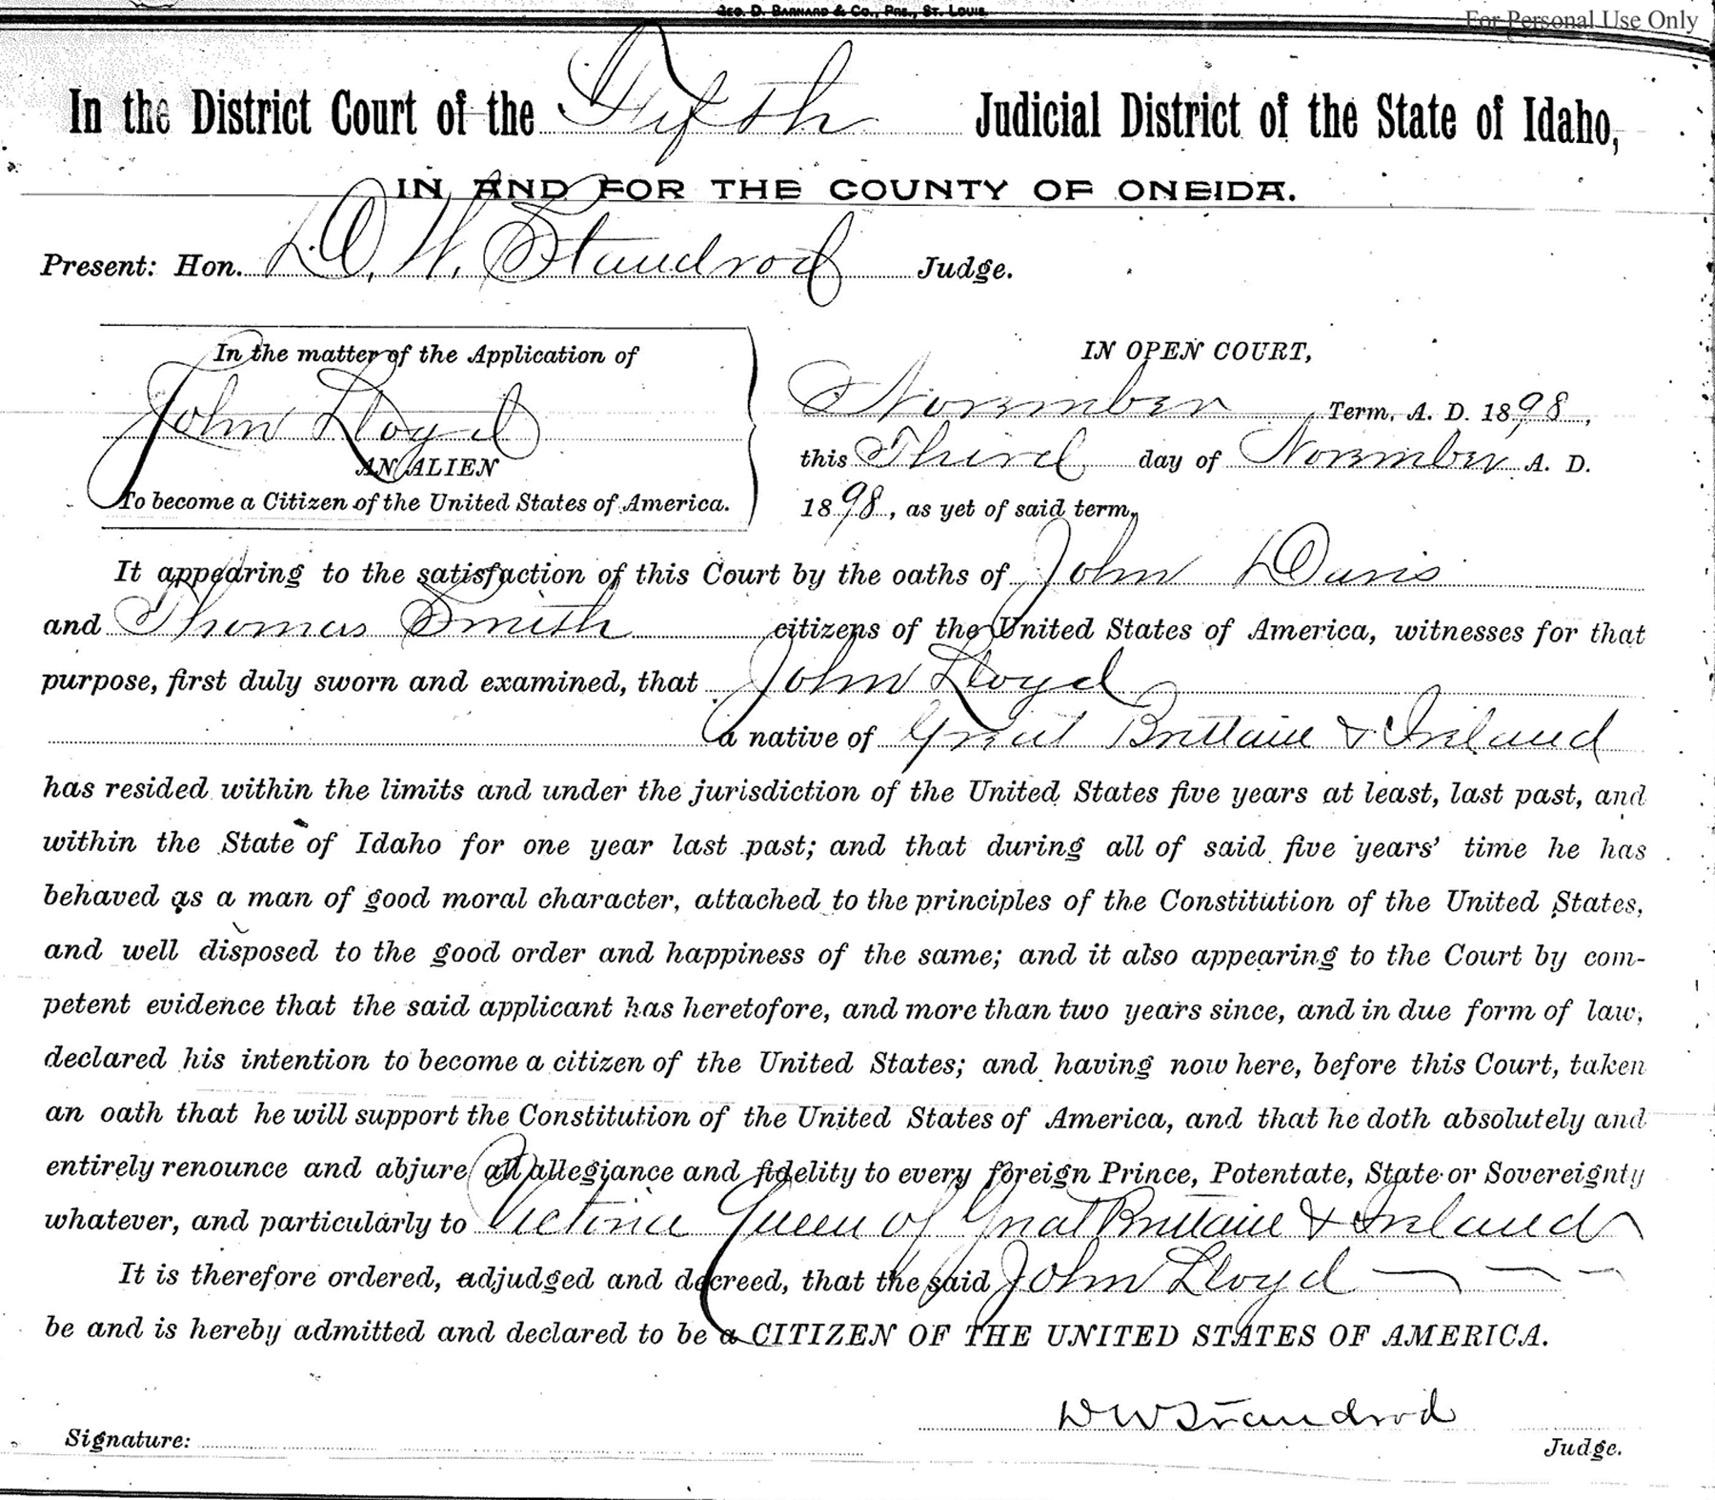 GEO. D. BARNARD & CO., PRS., ST. LOUIS.
For Personal Use Only
In the District Court of the Fifth Judicial District of the State of Idaho,
IN AND FOR THE COUNTY OF ONEIDA.
Present: Hon. D. W. Standrod Judge.
In the matter of the Application of
John Lloyd
AN ALIEN
To become a Citizen of the United States of America.
IN OPEN COURT,
November Term, A. D. 1898,
this Third day of November A. D.
1898, as yet of said term,
It appearing to the satisfaction of this Court by the oaths of John Davis
and Thomas Smith citizens of the United States of America, witnesses for that
purpose, first duly sworn and examined, that John Lloyd
a native of Great Brittain & Ireland
has resided within the limits and under the jurisdiction of the United States five years at least, last past, and
within the State of Idaho for one year last past; and that during all of said five years' time he has
behaved as a man of good moral character, attached to the principles of the Constitution of the United States,
and well disposed to the good order and happiness of the same; and it also appearing to the Court by com-
petent evidence that the said applicant has heretofore, and more than two years since, and in due form of law,
declared his intention to become a citizen of the United States; and having now here, before this Court, taken
an oath that he will support the Constitution of the United States of America, and that he doth absolutely and
entirely renounce and abjure all allegiance and fidelity to every foreign Prince, Potentate, State or Sovereignty
whatever, and particularly to Victoria Queen of Great Brittain & Ireland
It is therefore ordered, adjudged and decreed, that the said John Lloyd
be and is hereby admitted and declared to be a CITIZEN OF THE UNITED STATES OF AMERICA.
D W Standrod
Signature:
Judge.